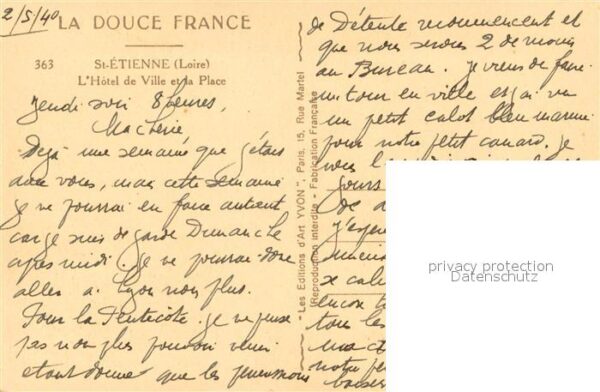 2/5/40
LA DOUCE FRANCE
363 St-ÉTIENNE (Loire)
L'Hôtel de Ville et la Place
Jeudi soir 8 heures,
Ma Chérie
Déjà une semaine que j'étais
avec vous, mais cette semaine
je ne pourrai en faire autant
car je suis de garde Dimanche
après midi. Je ne pourrai donc
aller a Lyon non plus.
Pour la Pentecôte je ne pense
pas non plus pouvoir venir
étant donné que les permissions
"Les Editions d'Art YVON", Paris, 15, Rue Martel
(Reproduction interdite - Fabrication Française)
de Détente recommencent et
que nous serons 2 de moins
au Bureau. Je viens de faire
un tour en ville et j'ai vu
un petit calot bleu marine
pour notre petit canard. Je
vous
jours
de
j'espère
x
encore
tous les
ma
notre
baisers
privacy protection
Datenschutz